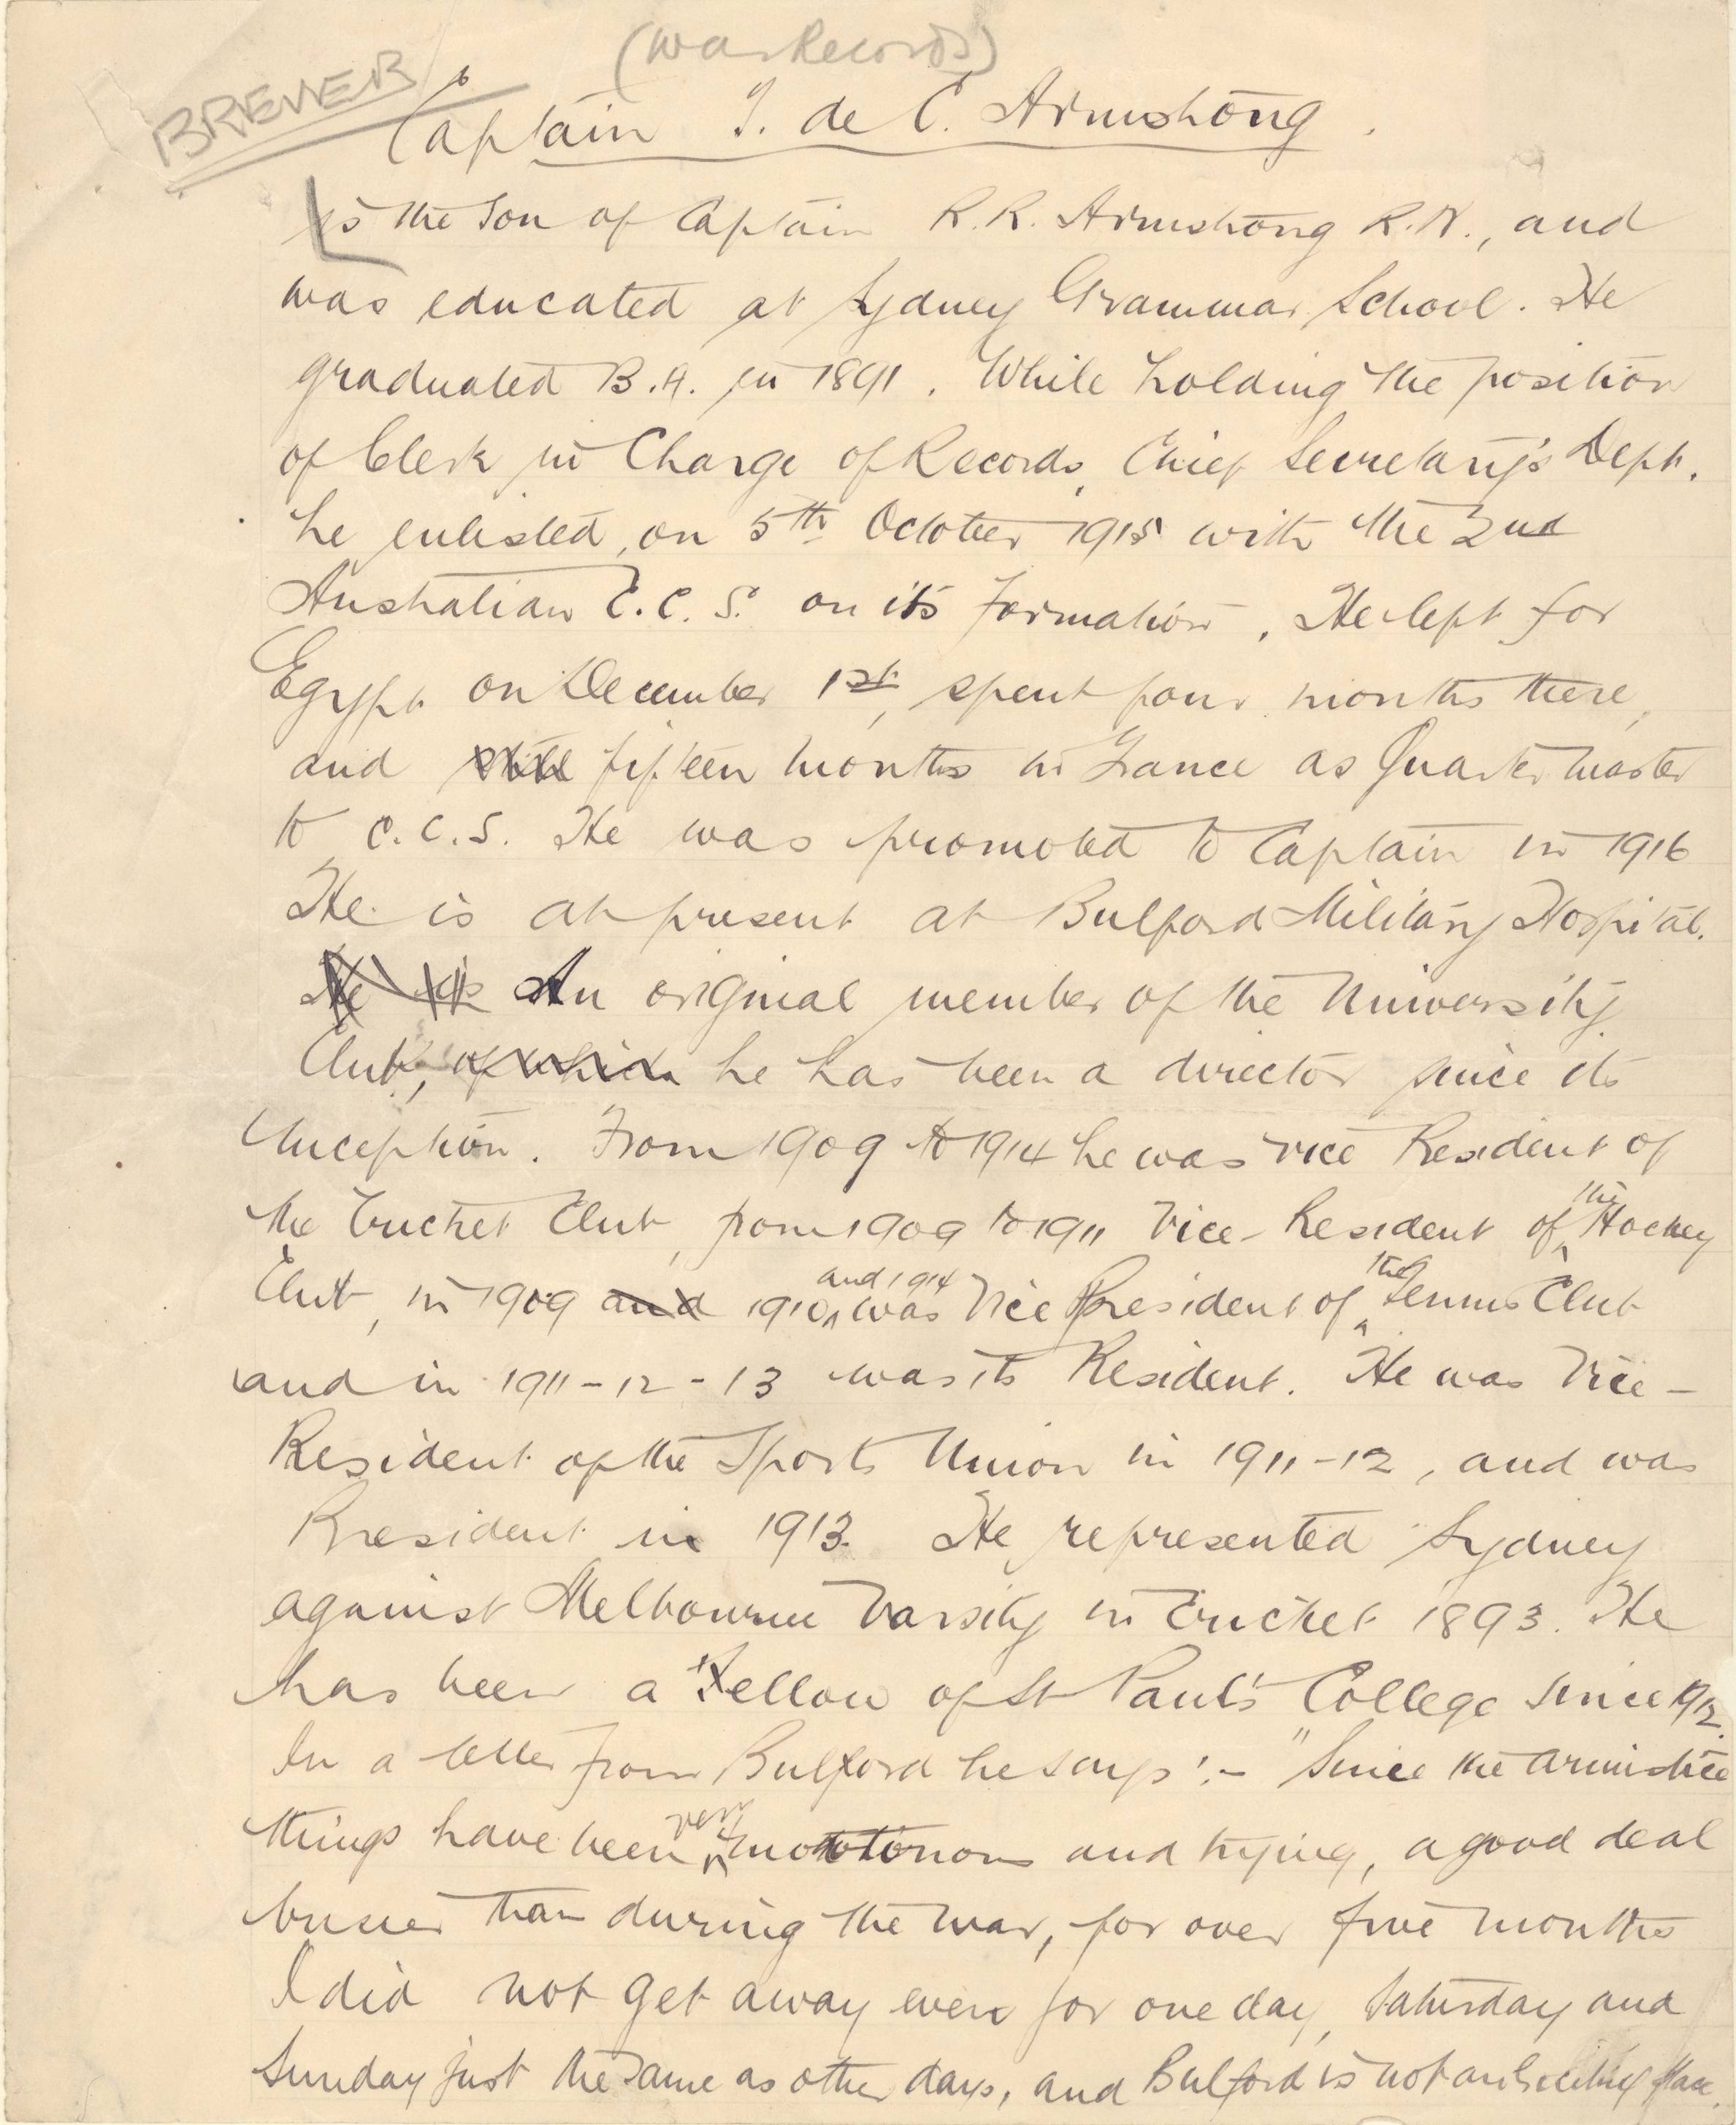 (War Records)
BREWER
Captain T. de C. Armstrong.
Is the Son of Captain R.R. Armstrong R.N., and
was educated at Sydney Grammar School. He
graduated B.A. in 1891. While holding the position
of Clerk in Charge of Records, Chief Secretary's Dept.
he enlisted, on 5th October 1915 with the 2nd
Australian C.C.S. on its formation. He left for
Egypt on December 1st, spent four months there,
and fifteen months in France as Quartermaster
to C.C.S. He was promoted to Captain in 1916
He is at present at Bulford Military Hospital.
He is An original member of the University
Club, of which he has been a director since its
inception. From 1909 to 1914 he was vice President of
the Cricket Club, from 1909 to 1911 Vice-President of the Hockey
Club, in 1909 and 1910, and 1914 was Vice President of the Tennis Club
and in 1911-12-13 was its President. He was Vice-
President of the Sports Union in 1911-12, and was
President in 1913. He represented Sydney
against Melbourne Varsity in Cricket 1893. He
has been a Fellow of St Paul's College since 1912.
In a letter from Bulford he says:- "Since the armistice
things have been very monotonous and trying, a good deal
busier than during the war, for over five months
I did not get away even for one day, Saturday and
Sunday just the same as other days, and Bulford is not an exciting place.